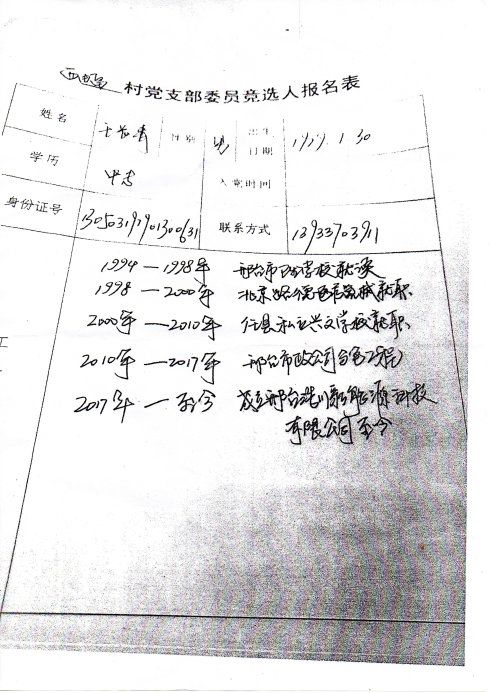 村党支部委员竞选人报名表
姓名 性别 男 出生日期 1979.1.30
学历 中专 入党时间
身份证号 130503197901300631 联系方式 13933703911
1994—1998年 邢台市 学校就读
1998—2000年 北京 就职
2000年—2010年 任县私立兴文学校就职
2010年—2017年 邢台市政公司 工程
2017年—至今 成立邢台 新能源科技
有限公司至今
工